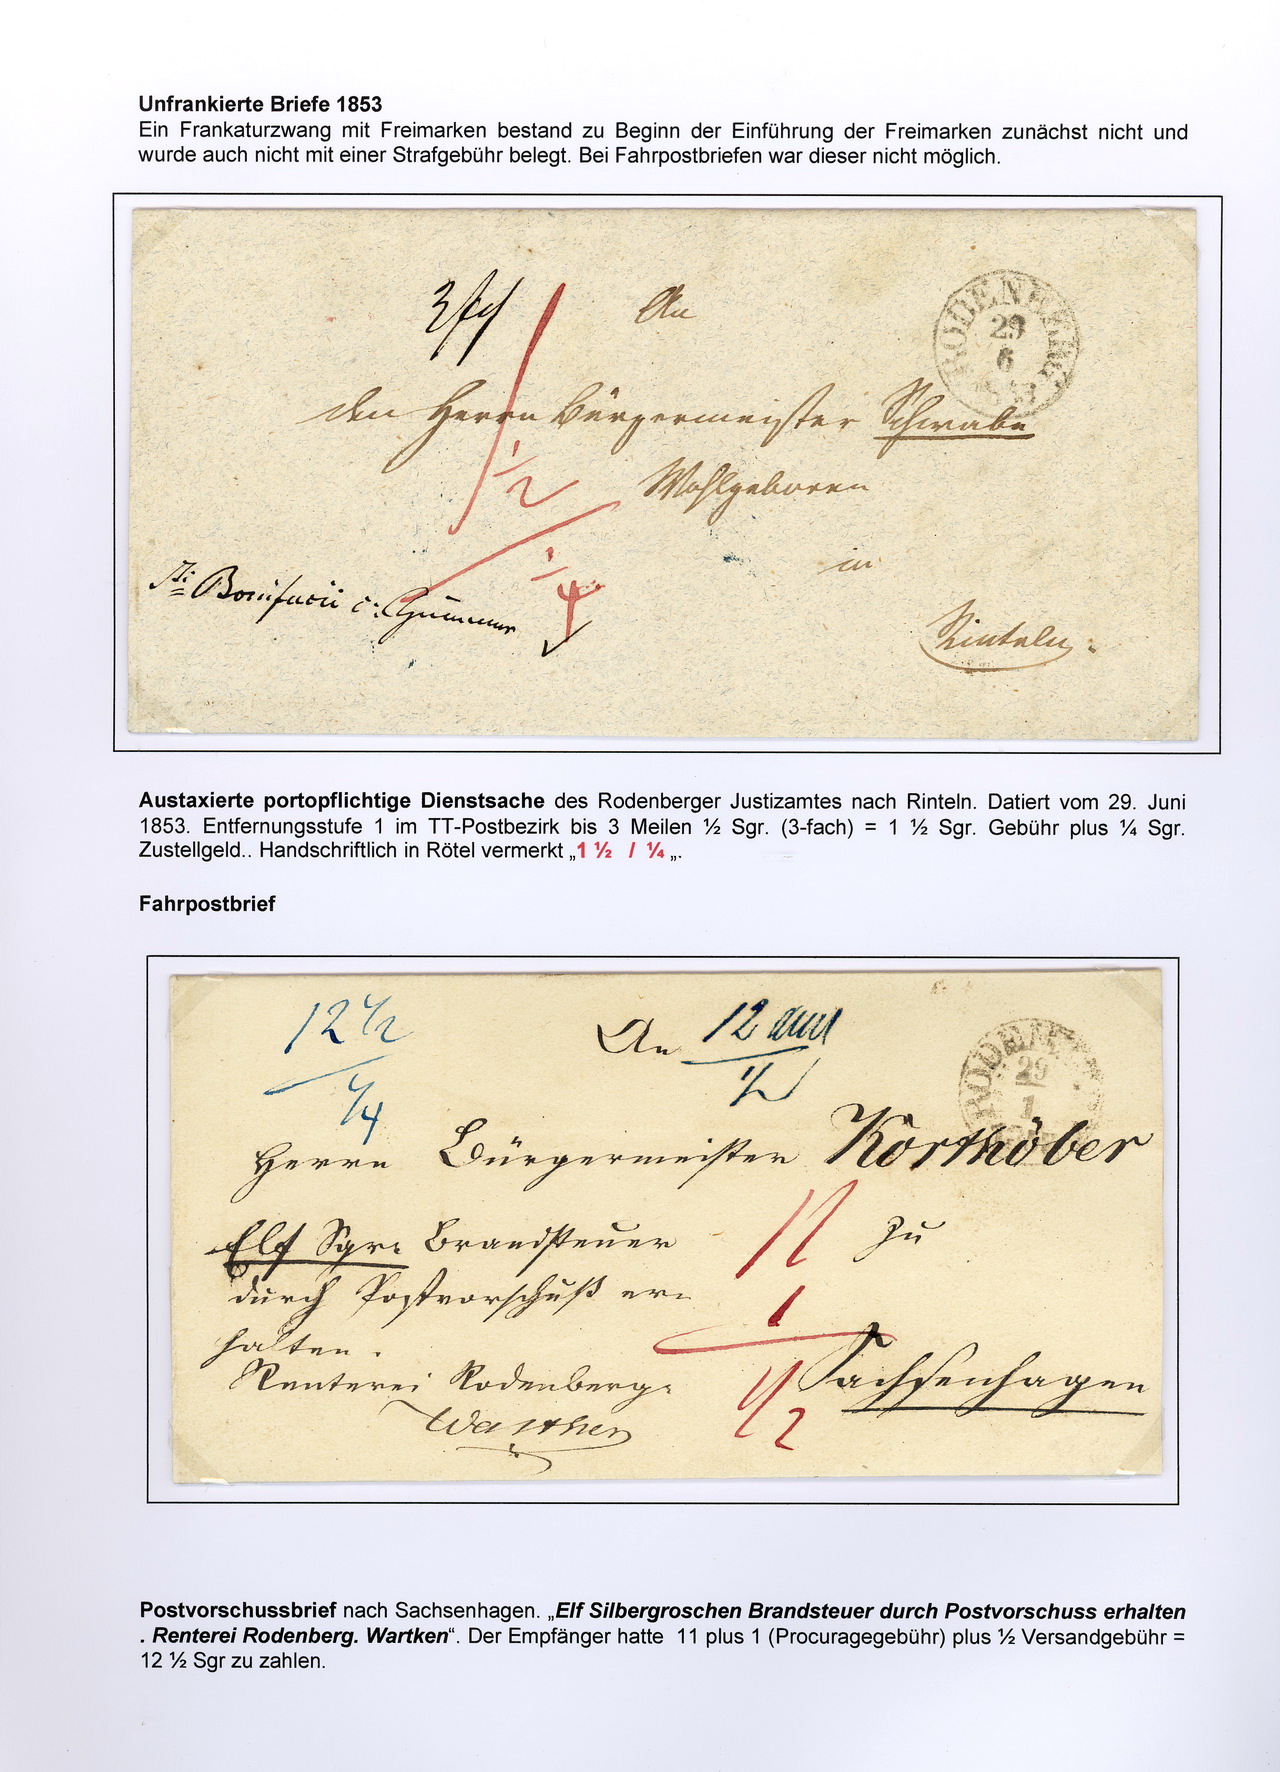 Unfrankierte Briefe 1853
Ein Frankaturzwang mit Freimarken bestand zu Beginn der Einführung der Freimarken zunächst nicht und
wurde auch nicht mit einer Strafgebühr belegt. Bei Fahrpostbriefen war dieser nicht möglich.
An
RODENBERG
29
6
den Herrn Bürgermeister Schwabe
1 1/2
Wohlgeboren
1/4
in
Rinteln.
Austaxierte portopflichtige Dienstsache des Rodenberger Justizamtes nach Rinteln. Datiert vom 29. Juni
1853. Entfernungsstufe 1 im TT-Postbezirk bis 3 Meilen ½ Sgr. (3-fach) = 1 ½ Sgr. Gebühr plus ¼ Sgr.
Zustellgeld.. Handschriftlich in Rötel vermerkt „1 ½ / ¼ „.
Fahrpostbrief
12 1/2
1/4
An
12
1/2
RODENBERG
29
1
Herrn Bürgermeister Körthöber
Elf Sgr. Brandsteuer
11
zu
durch Postvorschuß er=
1
halten.
Sachsenhagen
Renterei Rodenberg.
1/2
Postvorschussbrief nach Sachsenhagen. „Elf Silbergroschen Brandsteuer durch Postvorschuss erhalten
. Renterei Rodenberg. Wartken“. Der Empfänger hatte 11 plus 1 (Procuragegebühr) plus ½ Versandgebühr =
12 ½ Sgr zu zahlen.